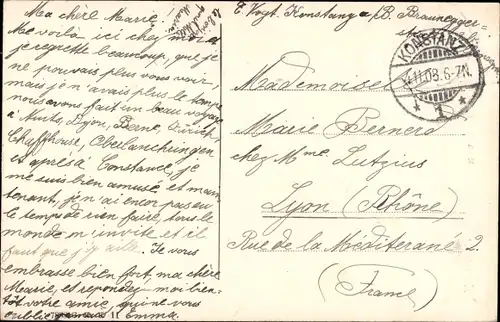 Ma chère Marie!
Me voilà ici chez moi
je regrette beaucoup, que je
ne pouvais plus vous voir,
mais je n'avais plus le temps
nous avons fait un beau voyage
à Lyon, Berne, Zürich,
Chaffhouse,
et après à Constance, je
me suis bien amusé, et main-
tenant, je n'ai encor pas eu
le temps de rien faire, tous le
monde m'invite et il
faut que j'y aille. Je vous
embrasse bien fort, ma chère
Marie, et repondez-moi bien-
tôt votre amie, qui ne vous
oublie Emma.
E. Vogt. Konstanz a/B. Braunegger-
KONSTANZ
4.11.08.6-7N.
* 1 *
Mademoiselle
Marie Bernerd
chez Mme Lutzius
Lyon (Rhône)
Rue de la Méditerané 2
(France)